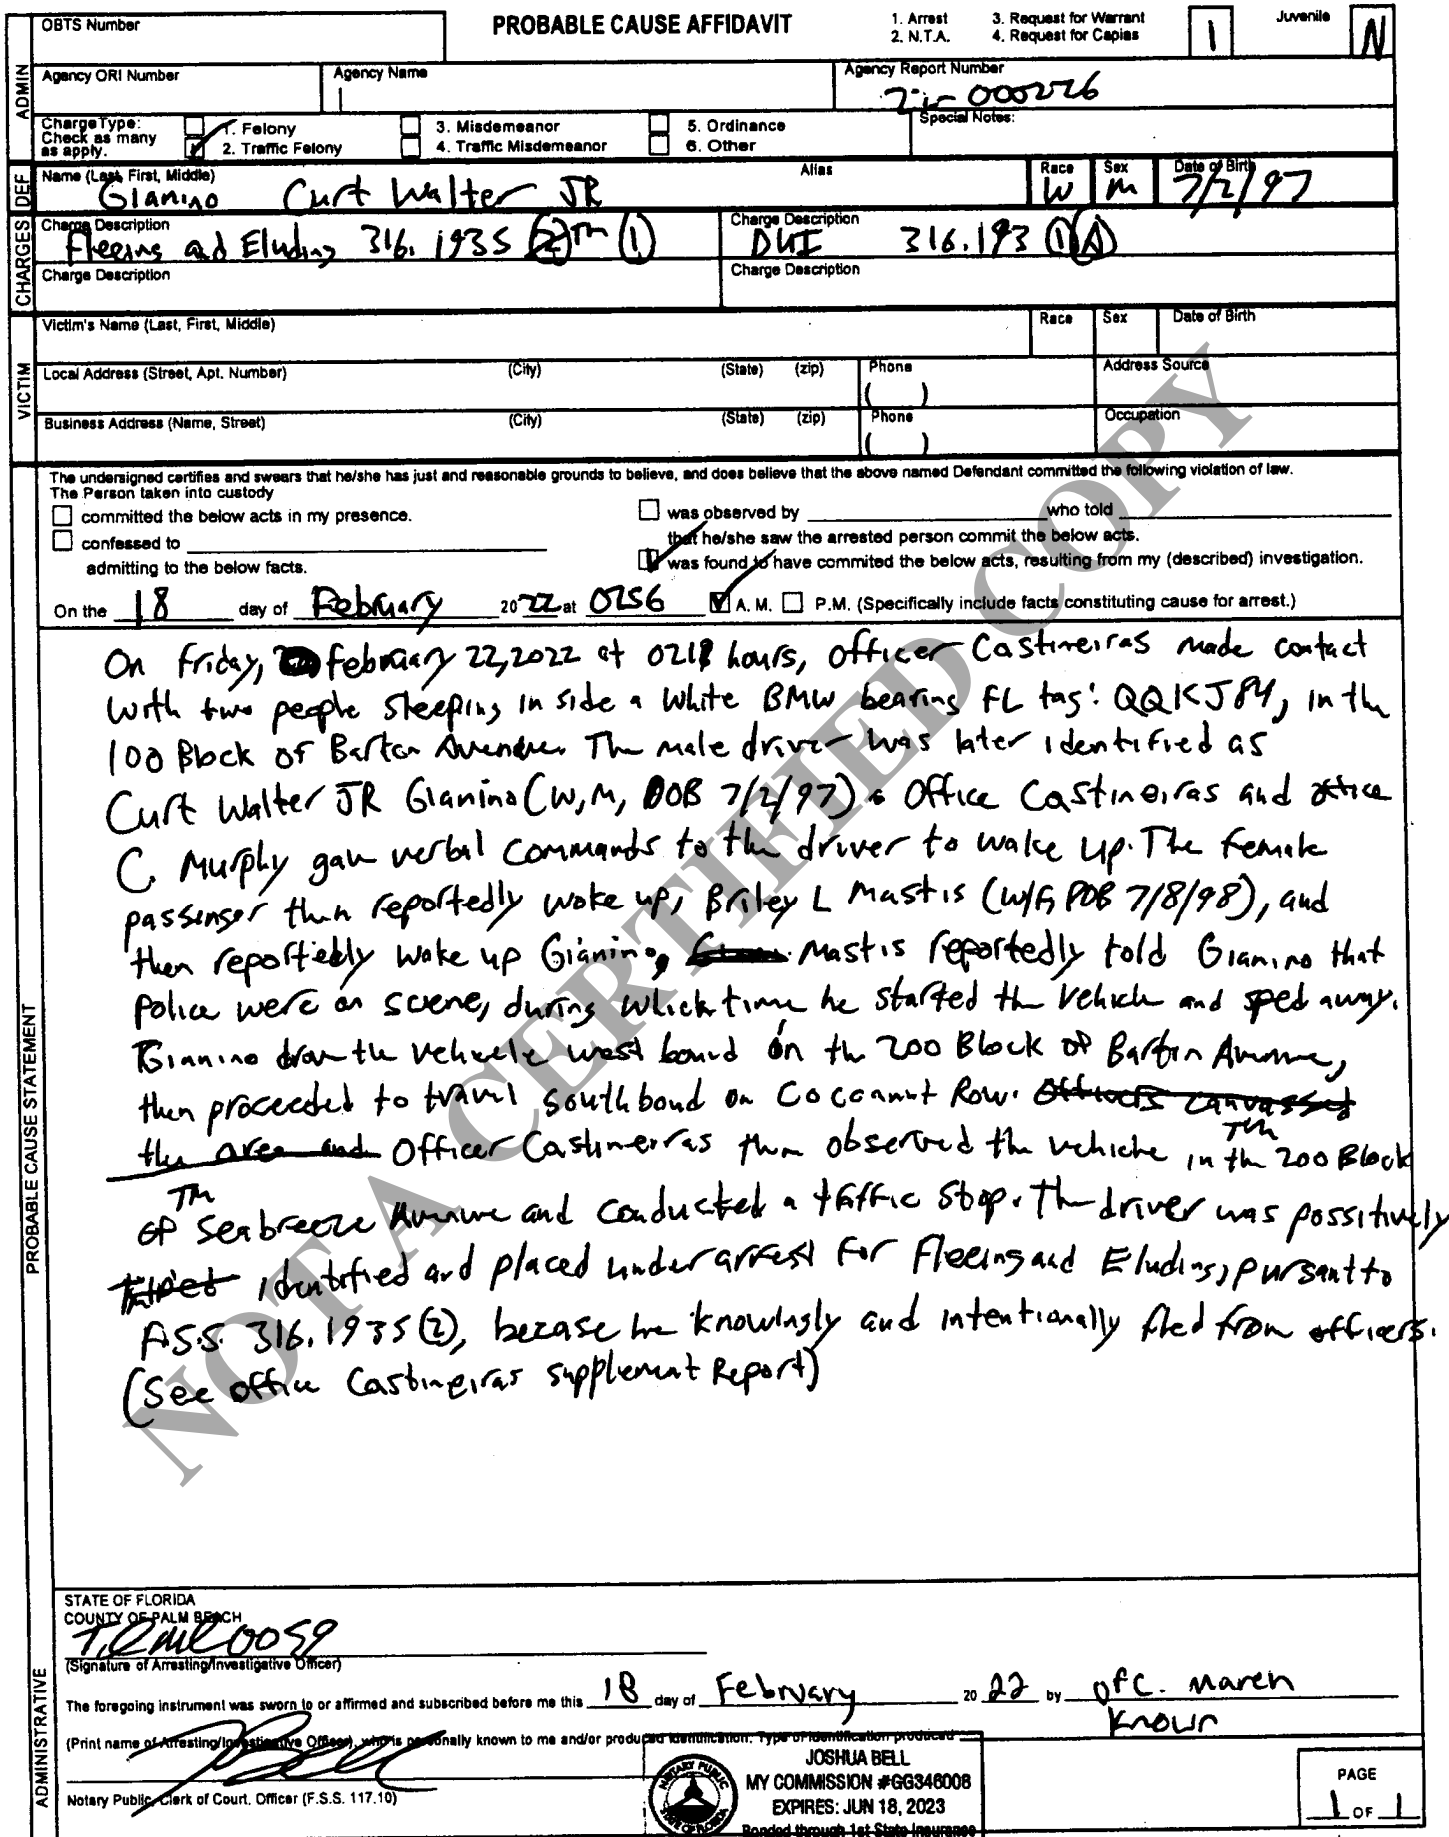 OBTS Number
PROBABLE CAUSE AFFIDAVIT
1. Arrest 3. Request for Warrant
2. N.T.A. 4. Request for Capias
1
Juvenile
N
ADMIN
Agency ORI Number
Agency Name
Agency Report Number
000226
Charge Type:
Check as many
as apply.
1. Felony
2. Traffic Felony
3. Misdemeanor
4. Traffic Misdemeanor
5. Ordinance
6. Other
Special Notes:
DEF
Name (Last, First, Middle)
Alias
Race
Sex
Date of Birth
Gianino Curt Walter JR
W
M
7/2/97
CHARGES
Charge Description
Fleeing and Eluding 316.1935 (2) TM (1)
Charge Description
DUI 316.193 (1)(A)
Charge Description
Charge Description
VICTIM
Victim's Name (Last, First, Middle)
Race
Sex
Date of Birth
Local Address (Street, Apt. Number) (City) (State) (zip) Phone
( )
Address Source
Business Address (Name, Street) (City) (State) (zip) Phone
( )
Occupation
The undersigned certifies and swears that he/she has just and reasonable grounds to believe, and does believe that the above named Defendant committed the following violation of law.
The Person taken into custody
committed the below acts in my presence.
confessed to
admitting to the below facts.
was observed by who told
that he/she saw the arrested person commit the below acts.
was found to have commited the below acts, resulting from my (described) investigation.
On the 18 day of February 20 22 at 0256 A. M. P.M. (Specifically include facts constituting cause for arrest.)
PROBABLE CAUSE STATEMENT
On Friday, February 22, 2022 at 0218 hours, Officer Castineiras made contact
with two people sleeping in side a white BMW bearing FL tag: QQKJ84, in the
100 Block of Barton Avenue. The male driver was later identified as
Curt Walter JR Gianino (W, M, DOB 7/2/97). Office Castineiras and office
C. Murphy gave verbal commands to the driver to wake up. The female
passenger then reportedly woke up, Briley L Mastis (W/F, DOB 7/8/98), and
then reportedly woke up Gianino, Mastis reportedly told Gianino that
Police were on scene, during which time he started the vehicle and sped away.
Gianino drove the vehicle west bound in the 200 Block of Barton Avenue,
then proceeded to travel southbond on Cocoanut Row. Officers canvassed
the area and Officer Castineiras then observed the vehicle in the 200 Block
TM
TM
of Seabreeze Avenue and conducted a traffic stop. The driver was possitively
identified and placed under arrest for Fleeing and Eluding, pursant to
F.S.S. 316.1935(2), becase he knowingly and intentionally fled from officers.
(See office Castineiras supplement Report)
NOT A CERTIFIED COPY
ADMINISTRATIVE
STATE OF FLORIDA
COUNTY OF PALM BEACH
0059
(Signature of Arresting/Investigative Officer)
The foregoing instrument was sworn to or affirmed and subscribed before me this 18 day of February 20 22 by Ofc. Maren
Known
(Print name of Arresting/Investigative Officer), who is personally known to me and/or produced identification. Type of identification produced
Notary Public, Clerk of Court, Officer (F.S.S. 117.10)
NOTARY PUBLIC
STATE OF FLORIDA
JOSHUA BELL
MY COMMISSION #GG346008
EXPIRES: JUN 18, 2023
Bonded through 1st State Insurance
PAGE
1 OF 1